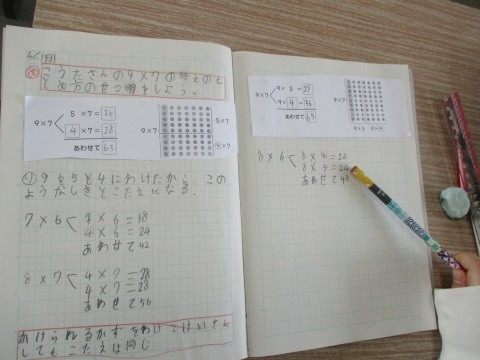 こうたさんの9×7の答えのも
とめ方のせつ明をしよう。
5 ×7=35
9×7
4 ×7=28
あわせて 63
5×7
4×7
9を5と4にわけたから、この
ようなしきとこたえになる。
7×6
3×6=18
4×6=24
あわせて42
8×7
4×7=28
4×7=28
あわせて56
かけられるかずをわけてけいさん
してもこたえは同じ
9×7
9× 3 =27
9× 4 =36
あわせて63
9×7
9×3 9×4
8×6
8×3=24
8×3=24
あわせて48